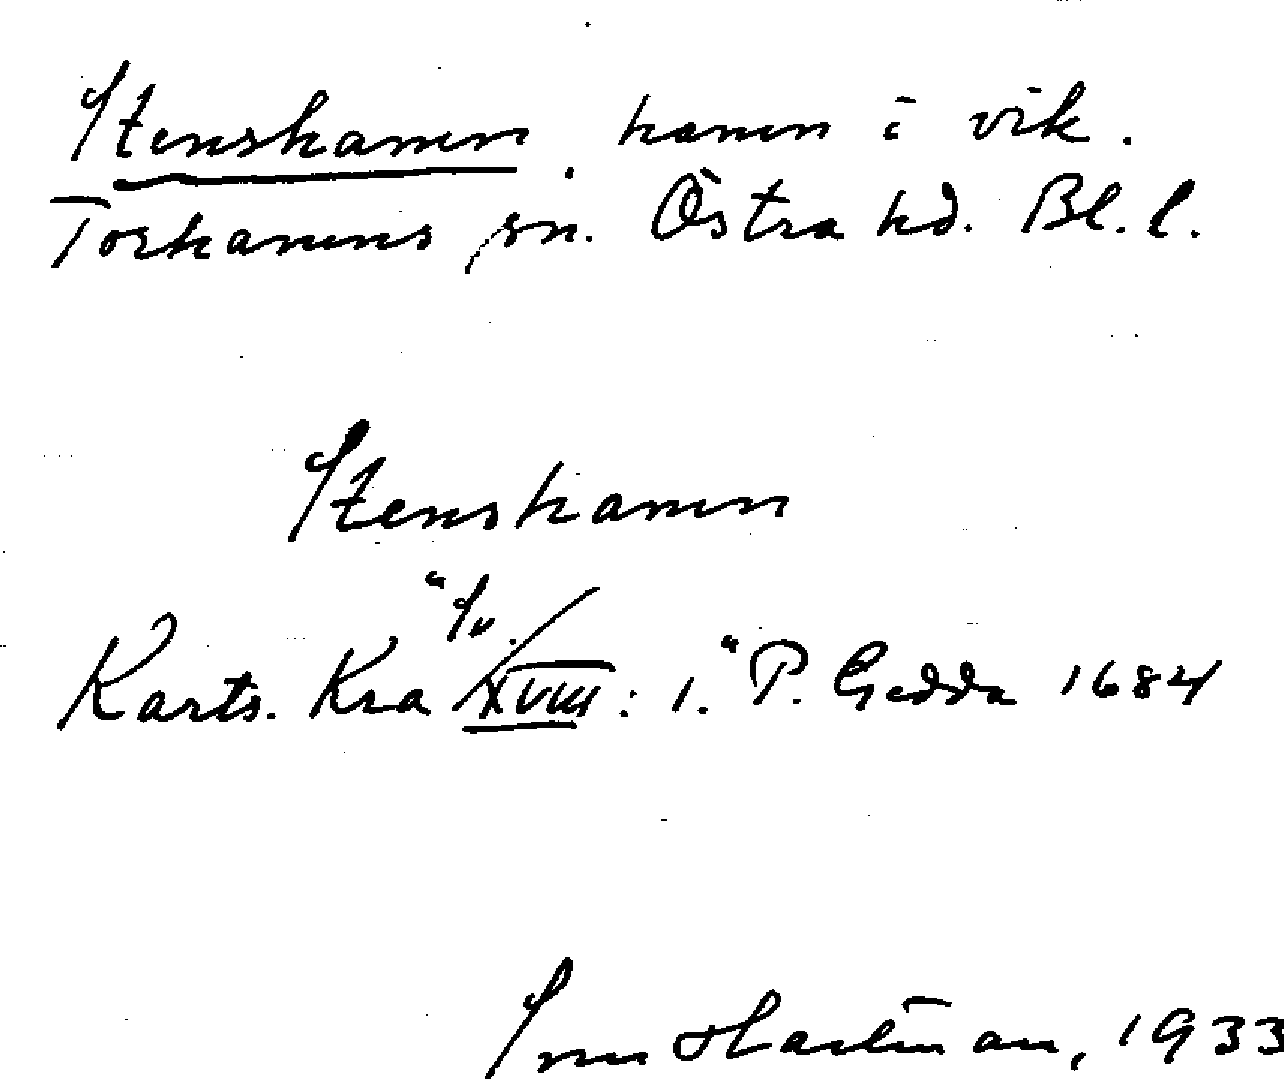 Stenshamn, hamn i vik.
Torhamns sn. Östra hd. Bl. l.
Stenshamn
Karts. Kra XVIII: 1. P. Gedda 1684
Hartman, 1933